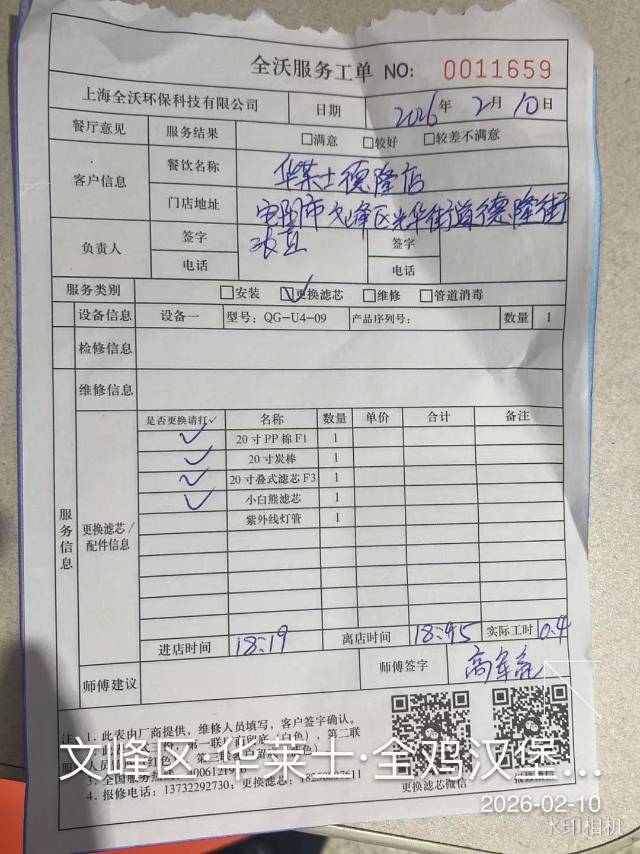 全沃服务工单 NO: 0011659
上海全沃环保科技有限公司 日期 2026年 2月 10日
餐厅意见 服务结果 □满意 □较好 □较差不满意
客户信息 餐饮名称 华莱士德隆店
门店地址 安阳市文峰区光华街道德隆街
负责人 签字 签字
电话 电话
服务类别 □安装 ☑更换滤芯 □维修 □管道消毒
设备信息 设备一 型号: QG-U4-09 产品序列号: 数量 1
检修信息
维修信息
服务信息 更换滤芯/配件信息
是否更换请打✓ 名称 数量 单价 合计 备注
✓ 20寸PP棉F1 1
✓ 20寸炭棒 1
✓ 20寸叠式滤芯F3 1
✓ 小白熊滤芯 1
紫外线灯管 1
进店时间 18:19 离店时间 18:45 实际工时 0.4
师傅建议 师傅签字
注: 1. 此表由厂商提供，维修人员填写，客户签字确认。
4. 报修电话: 13732292730; 更换滤芯:
更换滤芯微信 报修微信
文峰区·华莱士·全鸡汉堡...
2026-02-10
水印相机